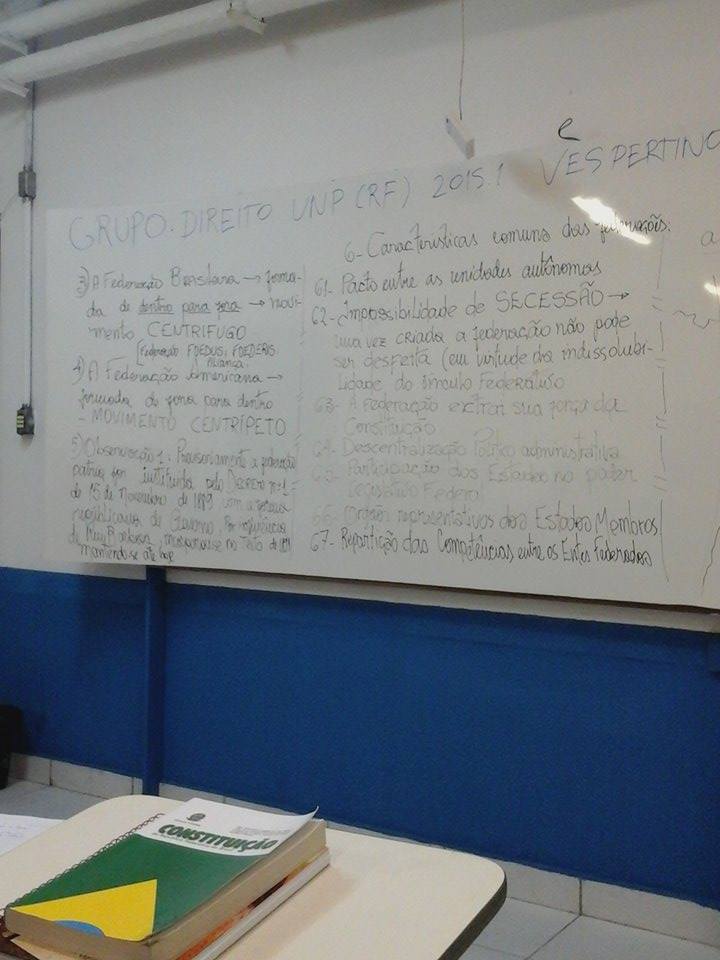 GRUPO. DIREITO UNP (RF) 2015.1 e VESPERTINO
3) A Federação Brasileira → forma-
da de dentro para fora → movi-
mento CENTRIFUGO
[Federação FOEDUS, FOEDERIS.
Aliança.
4) A Federação Americana →
formada de fora para dentro
- MOVIMENTO CENTRÍPETO
5) Observação 1: Provisoriamente a federação
pátria foi instituída pelo Decreto nº 1 -
de 15 de Novembro de 1889 com a
republicana de Governo. Por influência
de Ruy Barbosa, no Texto de 1891
mantendo-se até hoje
6- Características comuns das federações:
61- Pacto entre as unidades autônomas
62- Impossibilidade de SECESSÃO →
uma vez criada a federação não pode
ser desfeita (em virtude da indissolubi-
lidade do vínculo Federativo
63- A Federação extrai sua força da
Constituição
64- Descentralização Político administrativa
65- Participação dos Estados no poder
Legislativo Federal
66- Órgãos representativos dos Estados Membros
67- Repartição das Competências entre os Entes Federados
a
CONSTITUIÇÃO